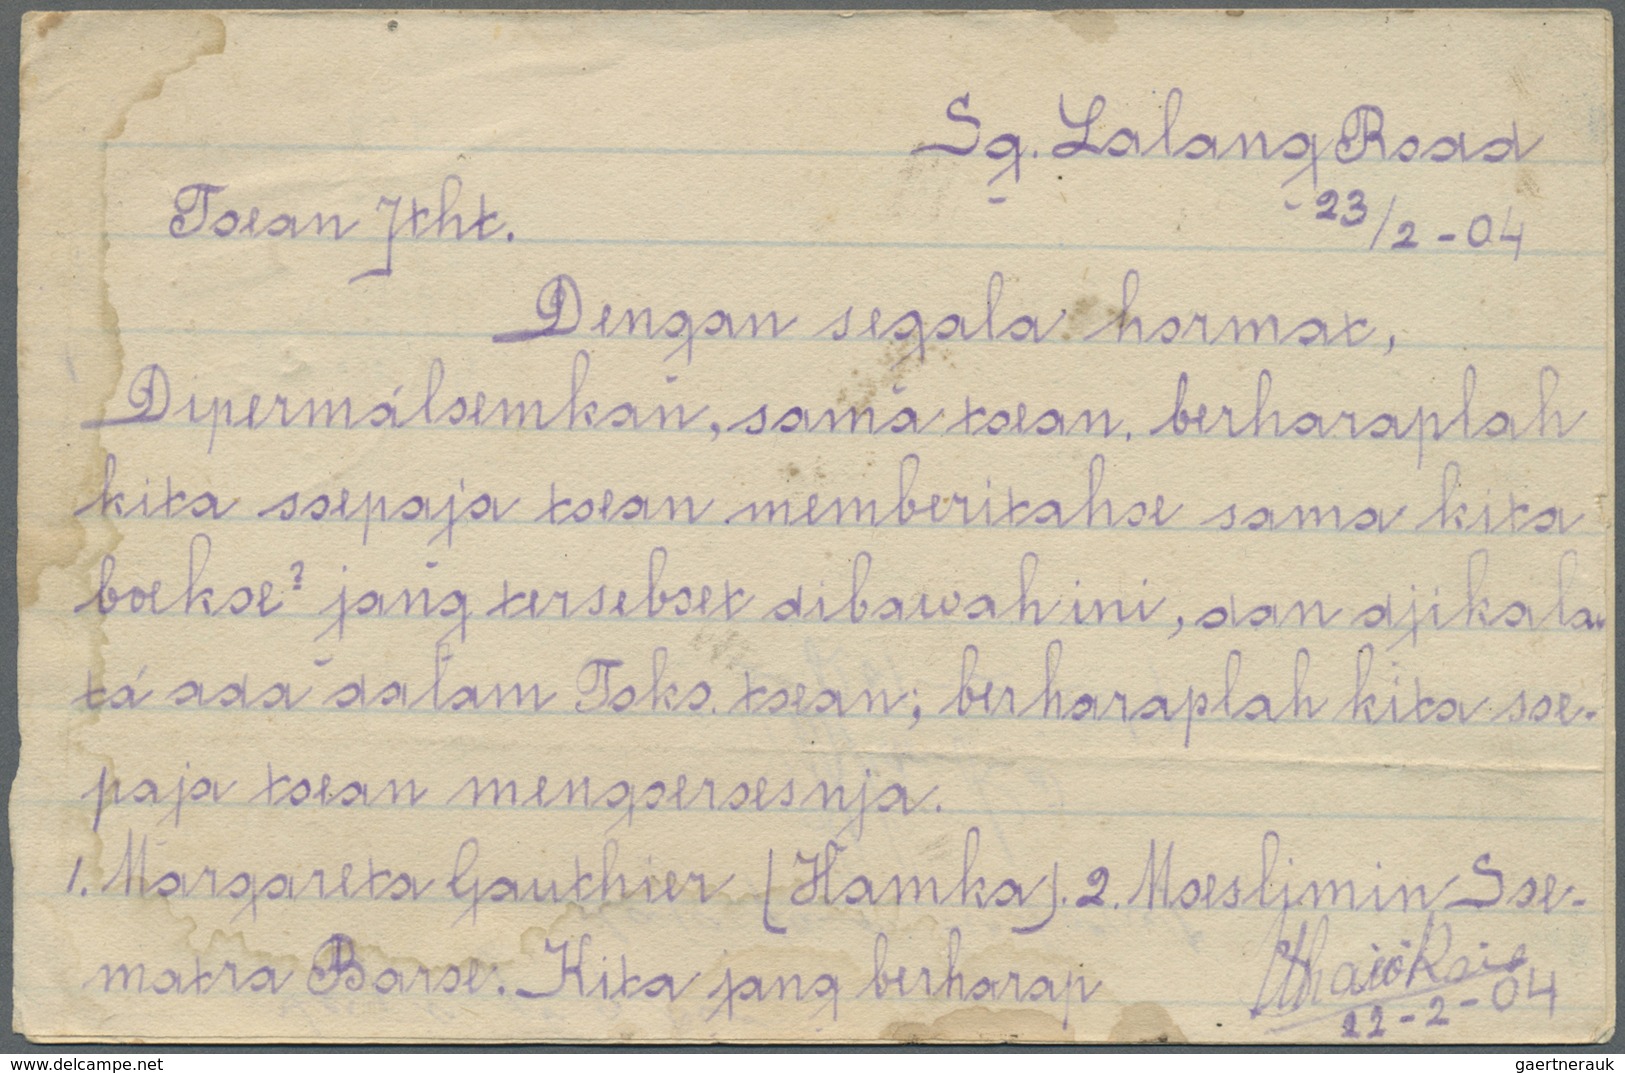 Sg. Lalang Road
23/2-04
Toean Jtht.
Dengan segala hormat,
Dipermáloemkan, sama toean, berharaplah
kita soepaja toean memberitahoe sama kita
boekoe? jang terseboet dibawah ini, dan djikala
tá ada dalam Toko toean; berharaplah kita soe-
paja toean mengoeroesnja.
1. Margareta Gauthier (Hamka). 2. Moeslimin Soe-
matra Baroe. Kita jang berharap
22-2-04
www.delcampe.net
gaertnerauk